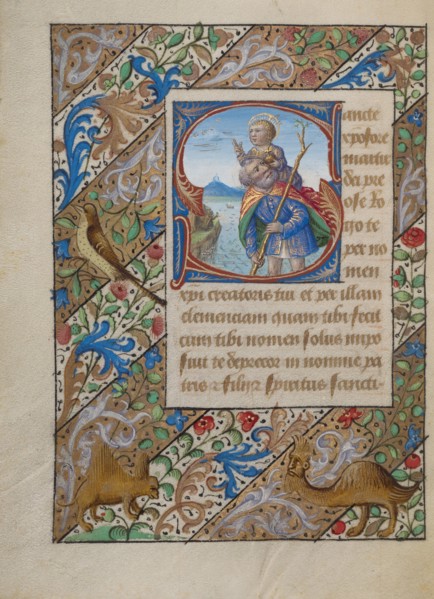 Sancte
xpofore
martir
dei pre
ose Ro
go te
per no
men
xpi creatoris tui et per illam
clemenciam quam tibi fecit
cum tibi nomen solus impo
suit te deprecor in nomine pa
tris ⁊ filii ⁊ spiritus sancti